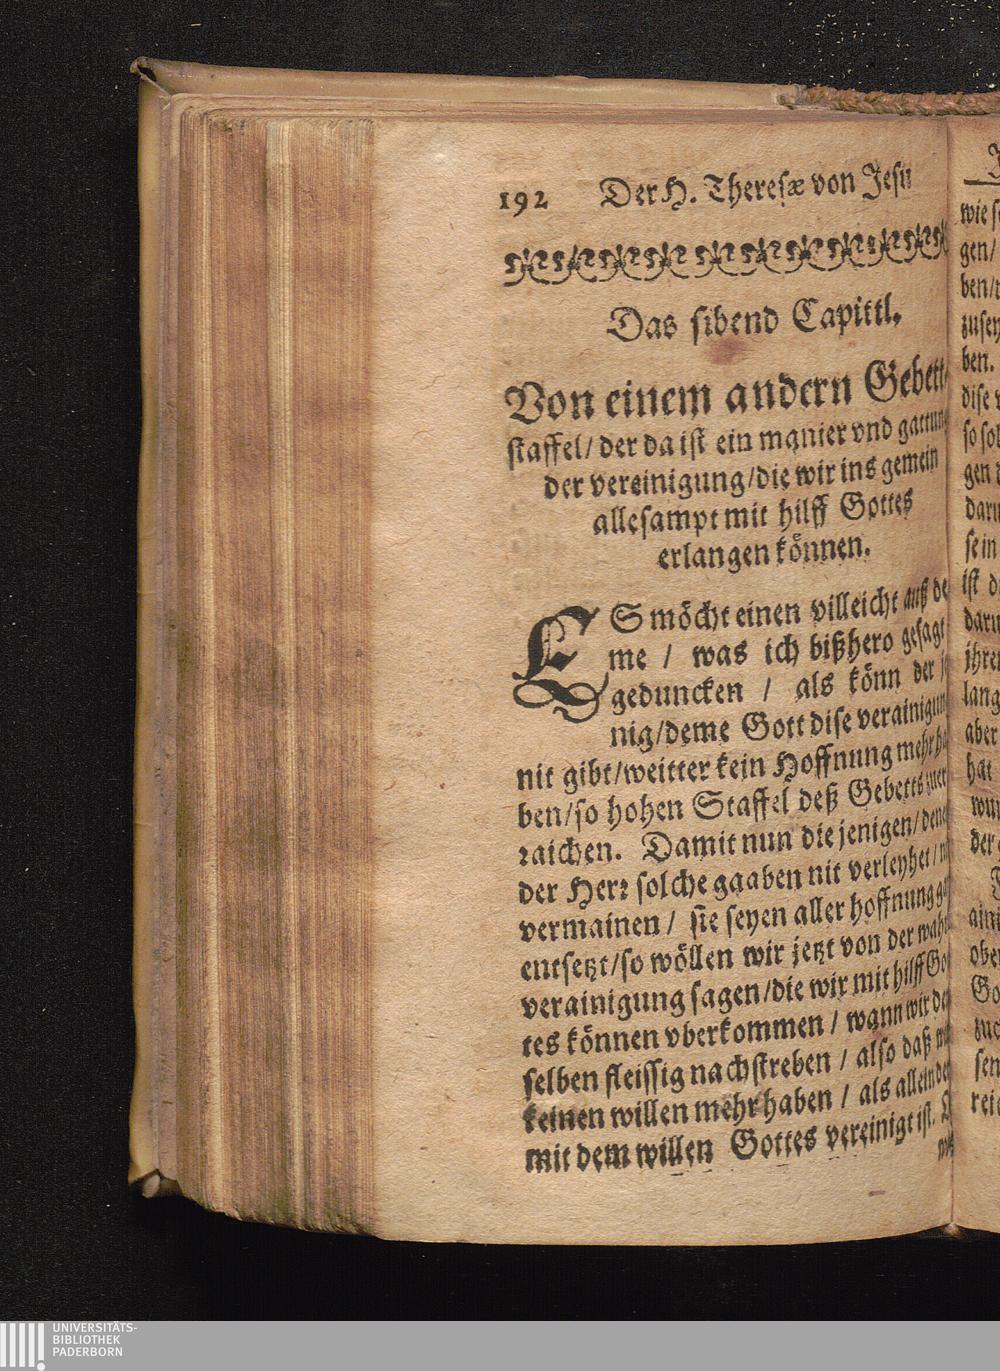 192 Der H. Theresæ von Jesu
Das sibend Capittl.
Von einem andern Gebett
staffel / der da ist ein manier vnd gattung
der vereinigung / die wir ins gemein
allesampt mit hilff Gottes
erlangen können.
ES möcht einen villeicht auß de
me / was ich bißhero gesagt
geduncken / als könn der je
nig / deme Gott dise verainigung
nit gibt / weitter kein Hoffnung mehr ha
ben / so hohen Staffel deß Gebetts zuer
raichen. Damit nun die jenigen / denen
der Herr solche gaaben nit verleyhet / nit
vermainen / sie seyen aller hoffnung ge
entsetzt / so wöllen wir jetzt von der wahren
verainigung sagen / die wir mit hilff Got
tes können vberkommen / wann wir der
selben fleissig nachstreben / also daß wir
keinen willen mehr haben / als allein den
mit dem willen Gottes vereinigt ist.
wie
gen /
ben /
zusey
ben.
dise
so sol
gen
daru
sein
ist
daru
jhre
lang
aber
hat
wun
der
aini
obe
Go
zuc
sen
reic
UNIVERSITÄTS-
BIBLIOTHEK
PADERBORN